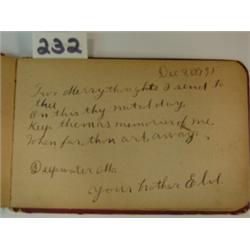 232
Dec 8, 1891
Two Merrythoughts I send to
thee
On this thy natal day,
Keep them as memories of me,
When far thou art away.
Deepwater Mo.
Your brother